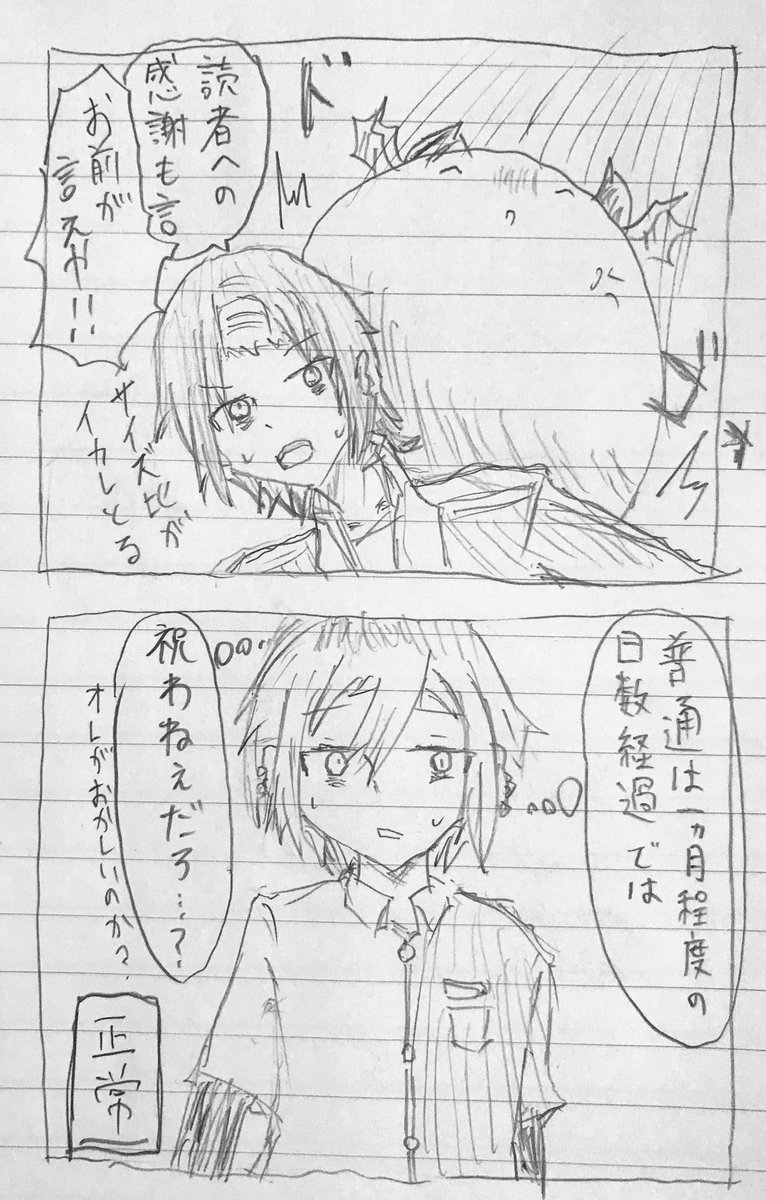 ドーン!!
読者への
感謝も言
お前が
言えや!!
サイズ比が
イカレとる
普通は一ヵ月程度の
日数経過では
祝わねぇだろ…?
オレがおかしいのか?
正常